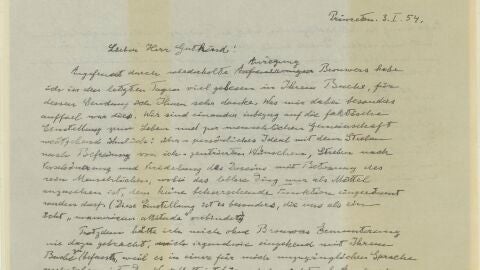 Princeton. 3. I. 54.
Lieber Herr Gutkind!
Anregung
Angefeuert durch wiederholte Brouwers habe
ich in den letzten Tagen viel gelesen in Ihrem Buche, für
dessen Sendung ich Ihnen sehr danke. Was mir dabei besonders
auffiel war dies. Wir sind einander inbezug auf die faktische
Einstellung zum Leben und zur menschlichen Gemeinschaft
weitgehend ähnlich: persönliches Ideal mit dem Streben
nach Befreiung von ich-zentrierten Wünschen, Streben nach
Verschönerung und Veredelung des Daseins mit Betonung des
rein Menschlichen, wobei das leblose Ding nur als Mittel
anzusehen ist, dem keine beherrschende Funktion eingeräumt
werden darf. (Diese Einstellung ist es besonders, die uns als ein
echt "unamerican attitude" verbindet.)
Trotzdem hätte ich mich ohne Brouwers Ermunterung
nie dazu gebracht, mich irgendwie eingehend mit Ihrem
Buche zu befassen, weil es in einer für mich unzugänglichen Sprache